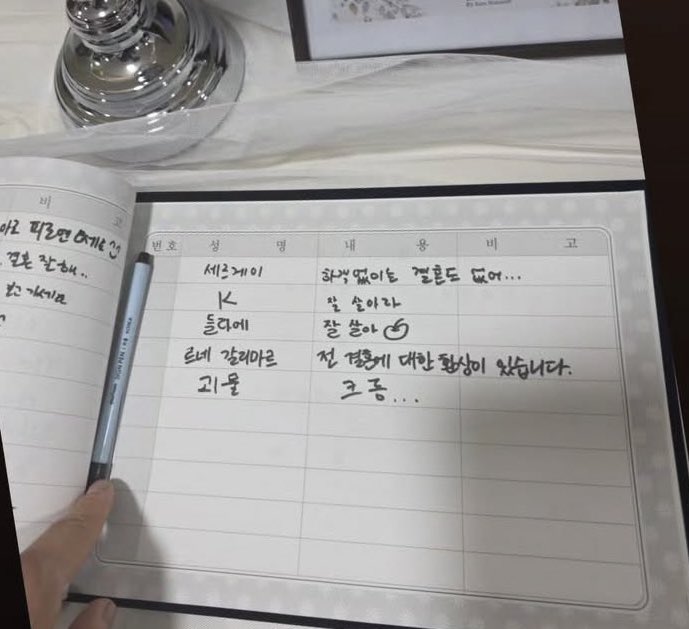 비 고
결혼 잘해..
번호 성 명 내 용 비 고
세르게이 하객 없이는 결혼도 없어...
K 잘 살아라
들다에 잘 살아
르네 갈리마르 전 결혼에 대한 환상이 있습니다.
괴물 크릉...